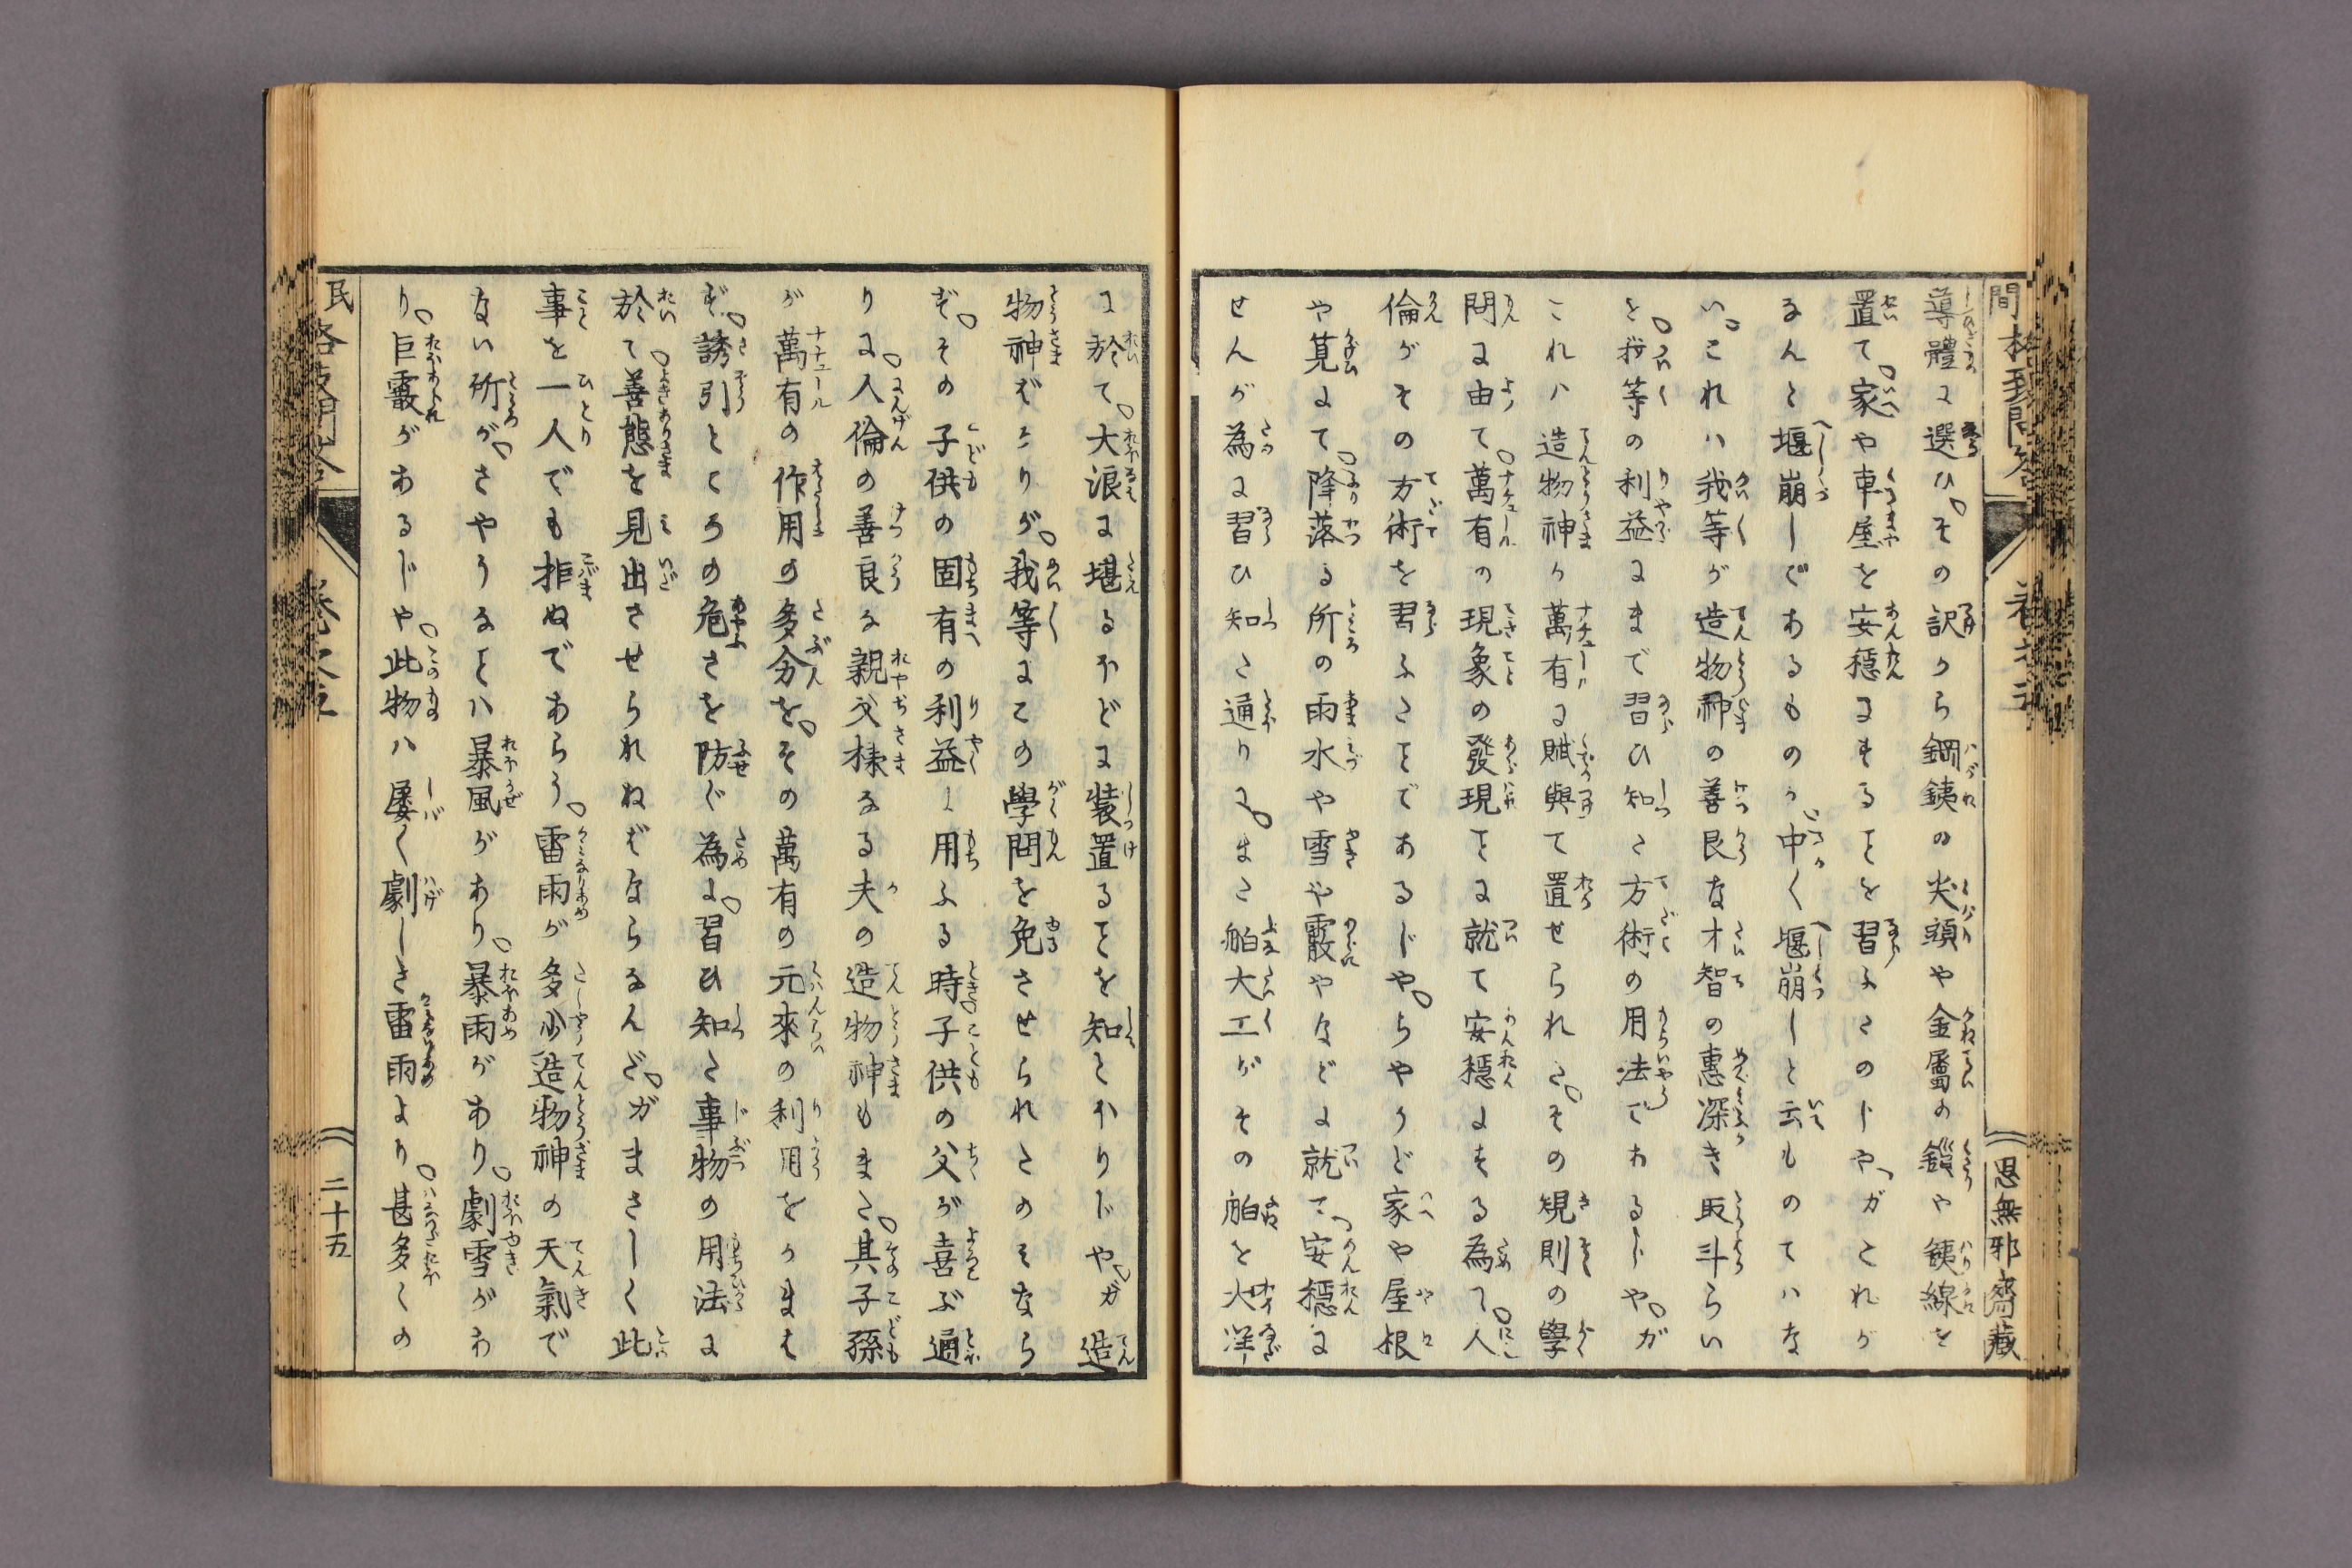 導體に選ひ。その訳から鋼銕の尖頭や金屬の鎖や銕線を
置て。家や車屋を安穏にするヿを習ふたのじや。ガこれが
るんと堰崩しであるものか中〱堰崩しと云ものてハな
い。これハ我等が造物神の善良な才智の惠深き取斗らい
を。我等の利益にまで習ひ知た方術の用法でわるじや。ガ
これハ造物神か萬有に賦與て置せられた。その規則の學
問に由て。萬有の現象の發現ヿに就て安穏にする為て。人
倫がその方術を習ふたヿであるじや。ちやうど家や屋根
や筧にて。降落る所の雨水や雪や霰やなどに就て。安穏に
せんが為に習ひ知た通りに。また舶大工がその舶を大洋
に於て。大浪に堪るやどに装置るヿを知たとふりじや。ガ造
物神ばこりが。我等にこの學問を免させられたのそなら
ば。その子供の固有の利益に用ふる時。子供の父が喜ぶ通
りに。人倫の善良な親父様なる夫の造物神もまた。其子孫
が萬有の作用の多分を。その萬有の元來の利用をかまえ
ば。誘引ところの危さを防ぐ為に。習ひ知た事物の用法に
於て。善態を見出させられねばならるんざ。ガまさしく此
事を一人でも拒ぬであらう。雷雨が多少造物神の天氣で
ない所が。さやうなヿハ暴風があり。暴雨があり。劇雪がわ
り。巨霰があるじや。此物ハ屡〱劇しき雷雨より。甚多くの
二十五
思無邪齋藏